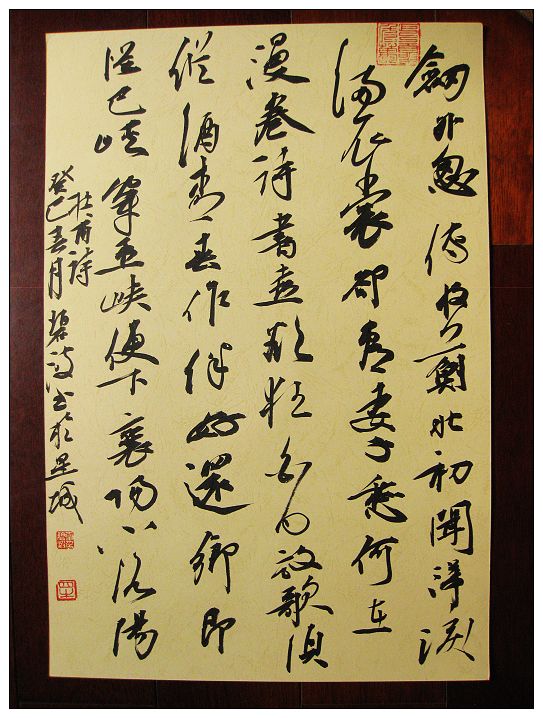 劍外忽傳收薊北初聞涕淚
滿衣裳卻看妻子愁何在
漫卷詩書喜欲狂白日放歌須
縱酒青春作伴好還鄉即
從巴峽穿巫峽便下襄陽向洛陽
杜甫詩
癸巳春月碧波书於星城